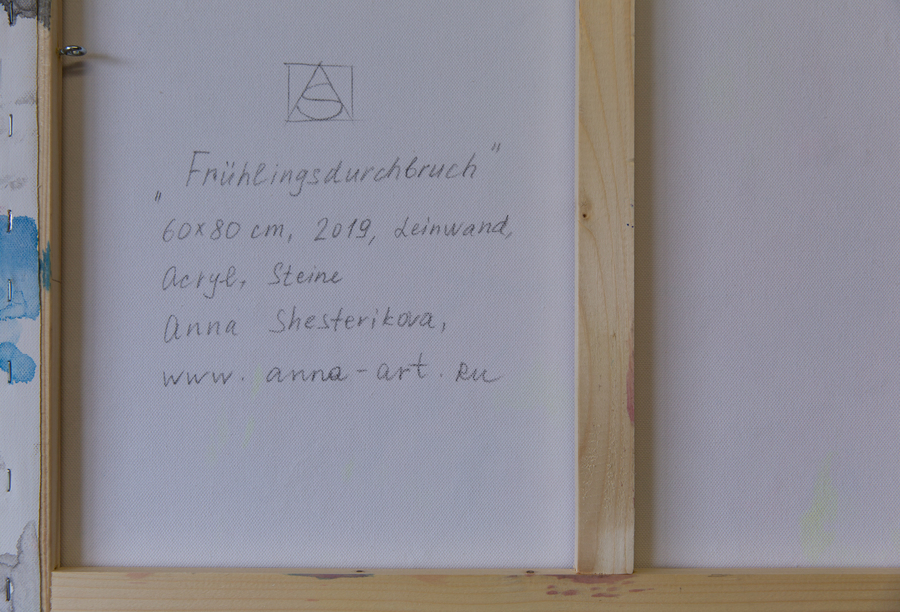 AS
„Frühlingsdurchbruch"
60x80 cm, 2019, Leinwand,
Acryl, Steine
Anna Shesterikova,
www.anna-art.ru